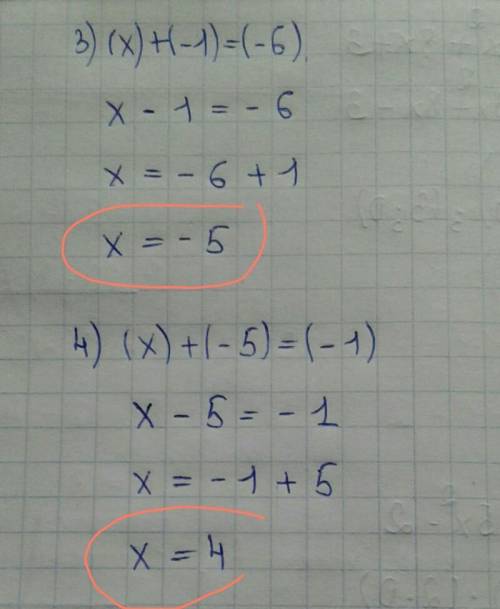 3) (x)+(-1)=(-6)
x - 1 = - 6
x = - 6 + 1
x = - 5
4) (x)+(-5)=(-1)
x - 5 = - 1
x = - 1 + 5
x = 4